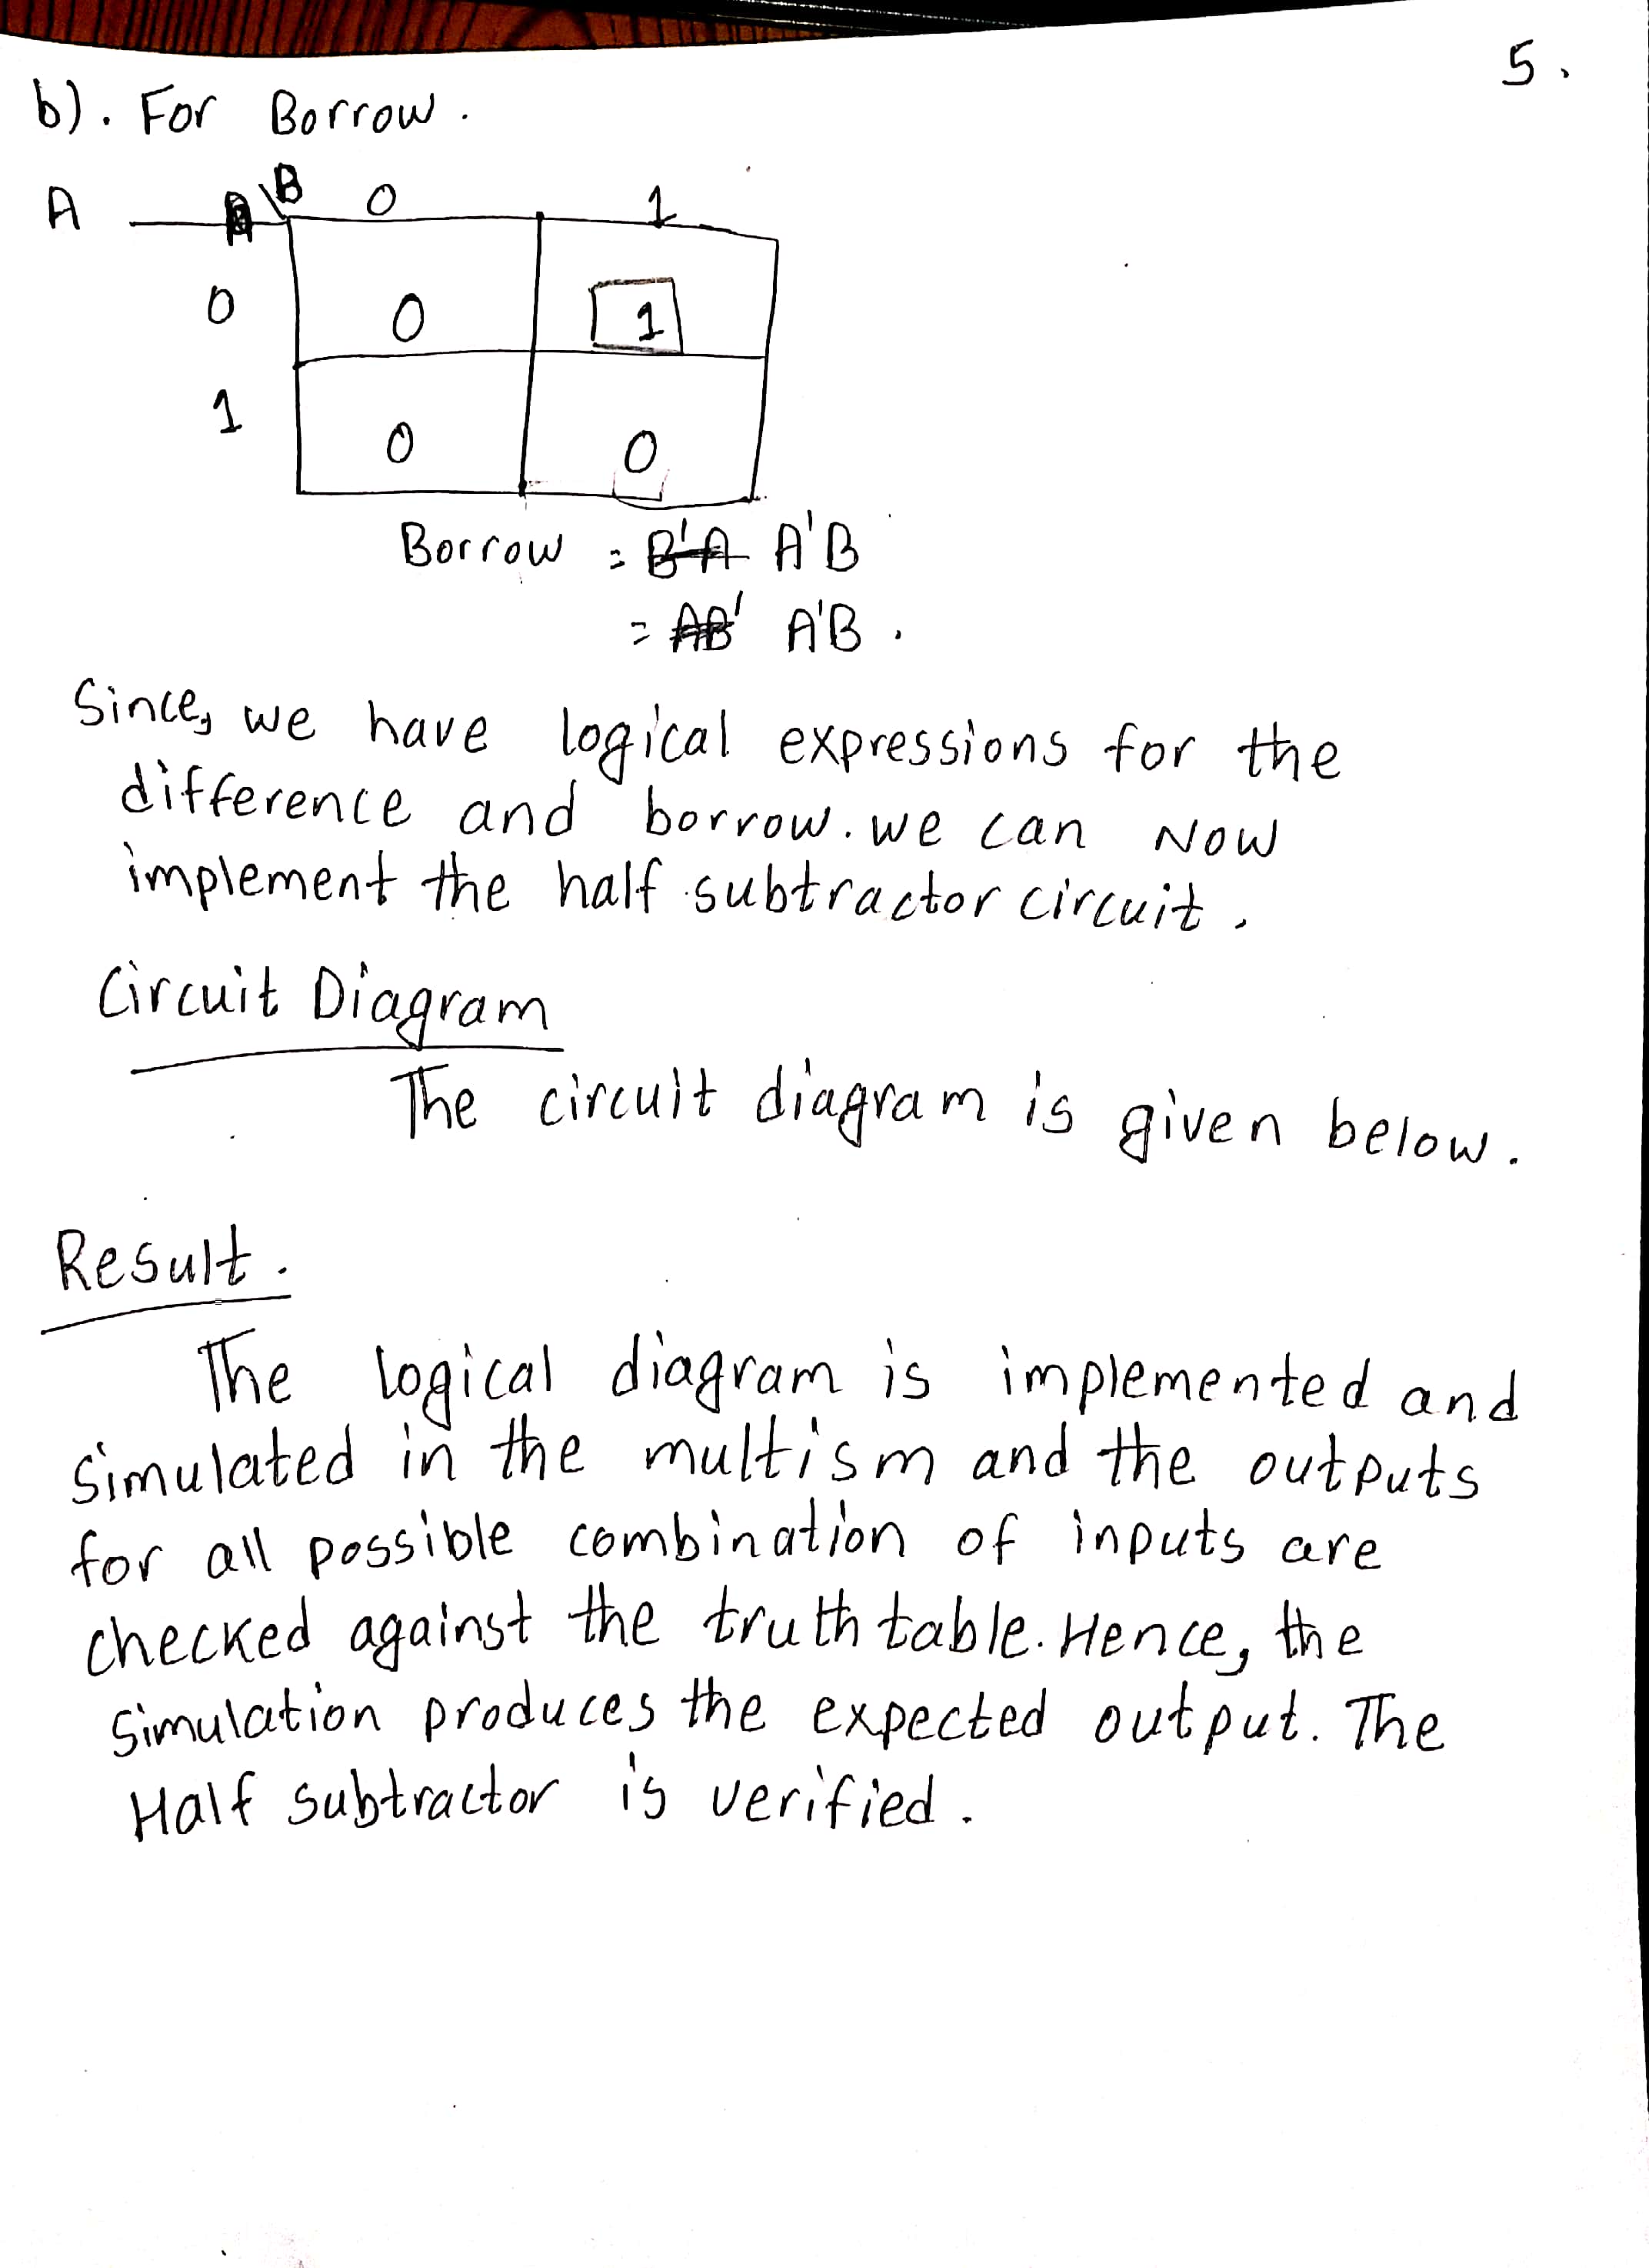 5.
b). For Borrow.
A A\B 0 1
0 0 1
1 0 0
Borrow = B'A A'B
= AB' A'B.
Since, we have logical expressions for the
difference and borrow. we can Now
implement the half subtractor circuit.
Circuit Diagram
The circuit diagram is given below.
Result.
The logical diagram is implemented and
simulated in the multism and the outputs
for all possible combination of inputs are
checked against the truth table. Hence, the
simulation produces the expected output. The
Half subtractor is verified.